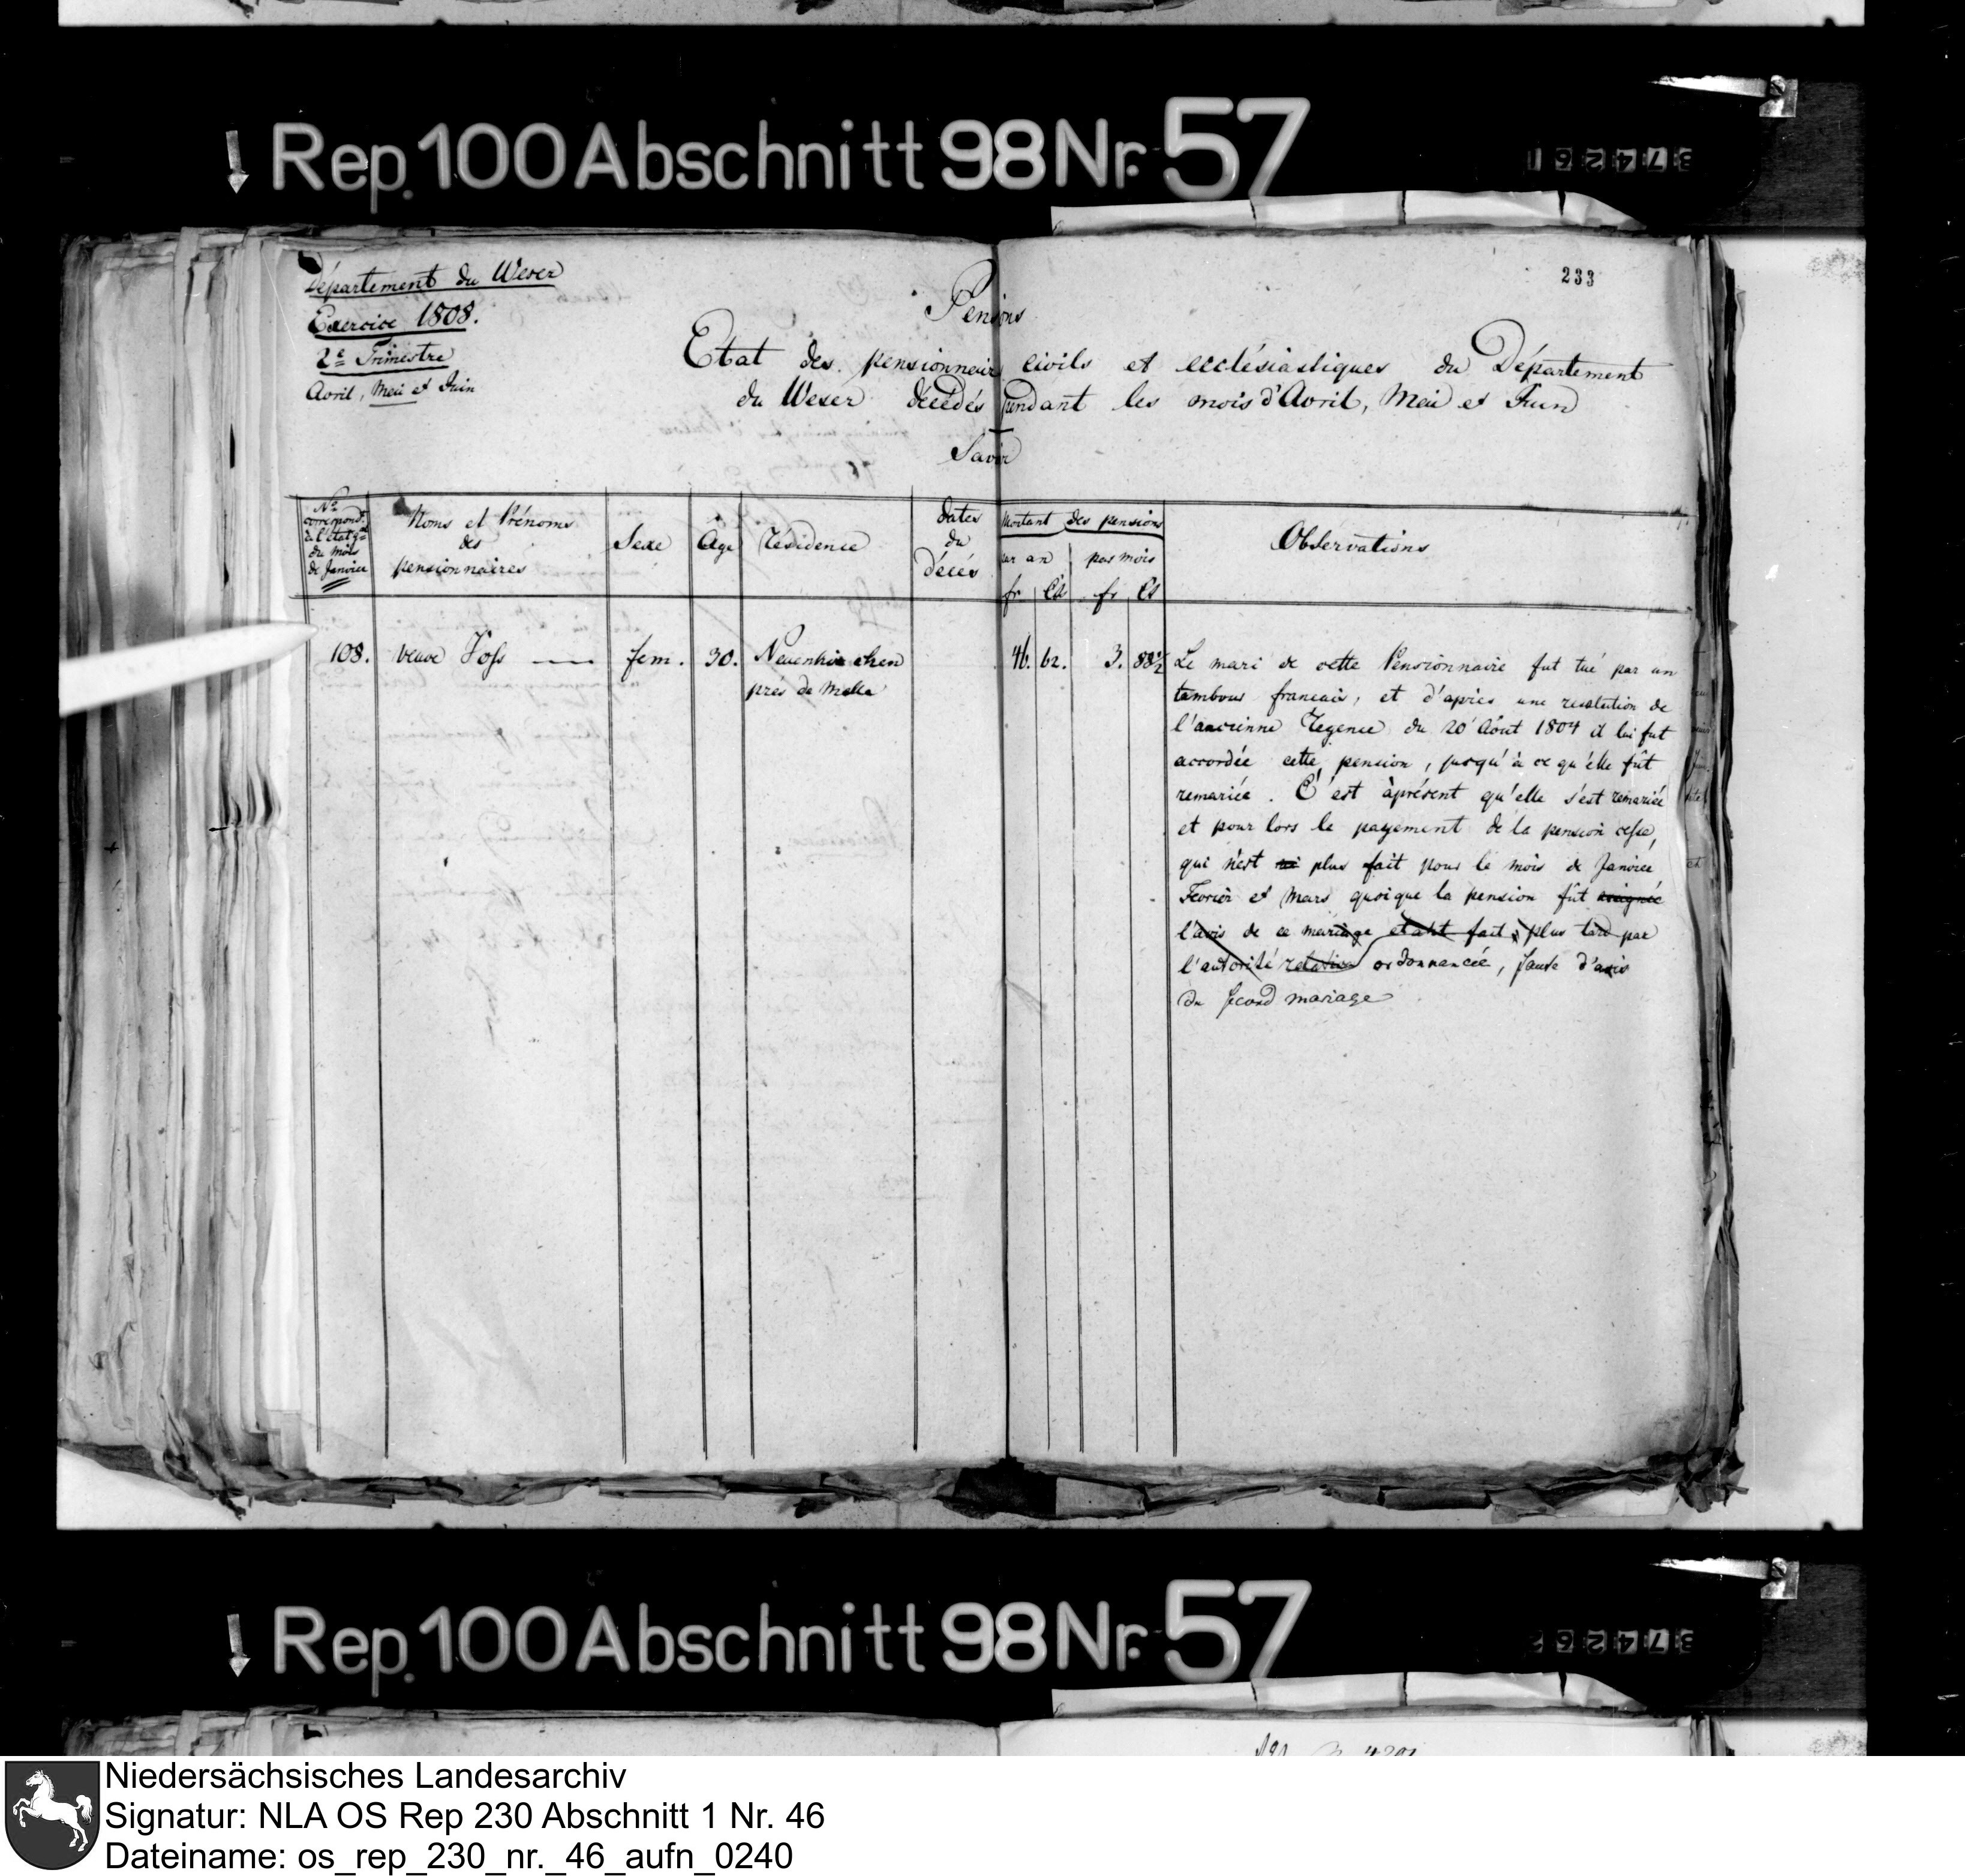 Rep. 100 Abschnitt 98 Nr. 57
233
Département du Weser
Exercice 1808.
2e Trimestre
Avril, Mai et Juin
Pensions
Etat des pensionnairs civils et ecclésiastiques du Département
du Weser décédés pendant les mois d'Avril, Mai et Juin
Savoir
No correspondt de l'état gal du mois de Janvier
Noms et Prénoms des pensionnaires
Sexe
Age
Résidence
dates du décés
Montant des pensions
par an
par mois
fr. Cs fr Cs
Observations
108. veuve Voss fem. 30. Neuenkirchen 46. 62. 3. 88 1/2 Le mari de cette Pensionnaire fut tué par un
prés de Melle tambour francais, et d'aprics une resolution de
l'ancienne Regence du 20 Aôut 1804 il lui fut
accordée cette pension, jusqu'à ce qu'elle fût
remariée. C'est àprésent qu'elle s'est remariée
et pour lors le payement de la pension cesse,
qui n'est plus fait pour le mois de Janvier
Fevrier et Mars quoique la pension fût assignée
l'avis de ce mariage etant fait plus tard par
l'autorité relative ordonnancée, faute d'avis
du second mariage
Rep. 100 Abschnitt 98 Nr. 57
Niedersächsisches Landesarchiv
Signatur: NLA OS Rep 230 Abschnitt 1 Nr. 46
Dateiname: os_rep_230_nr._46_aufn_0240